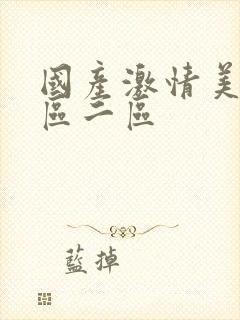 國產激情美
區二區
藍掉